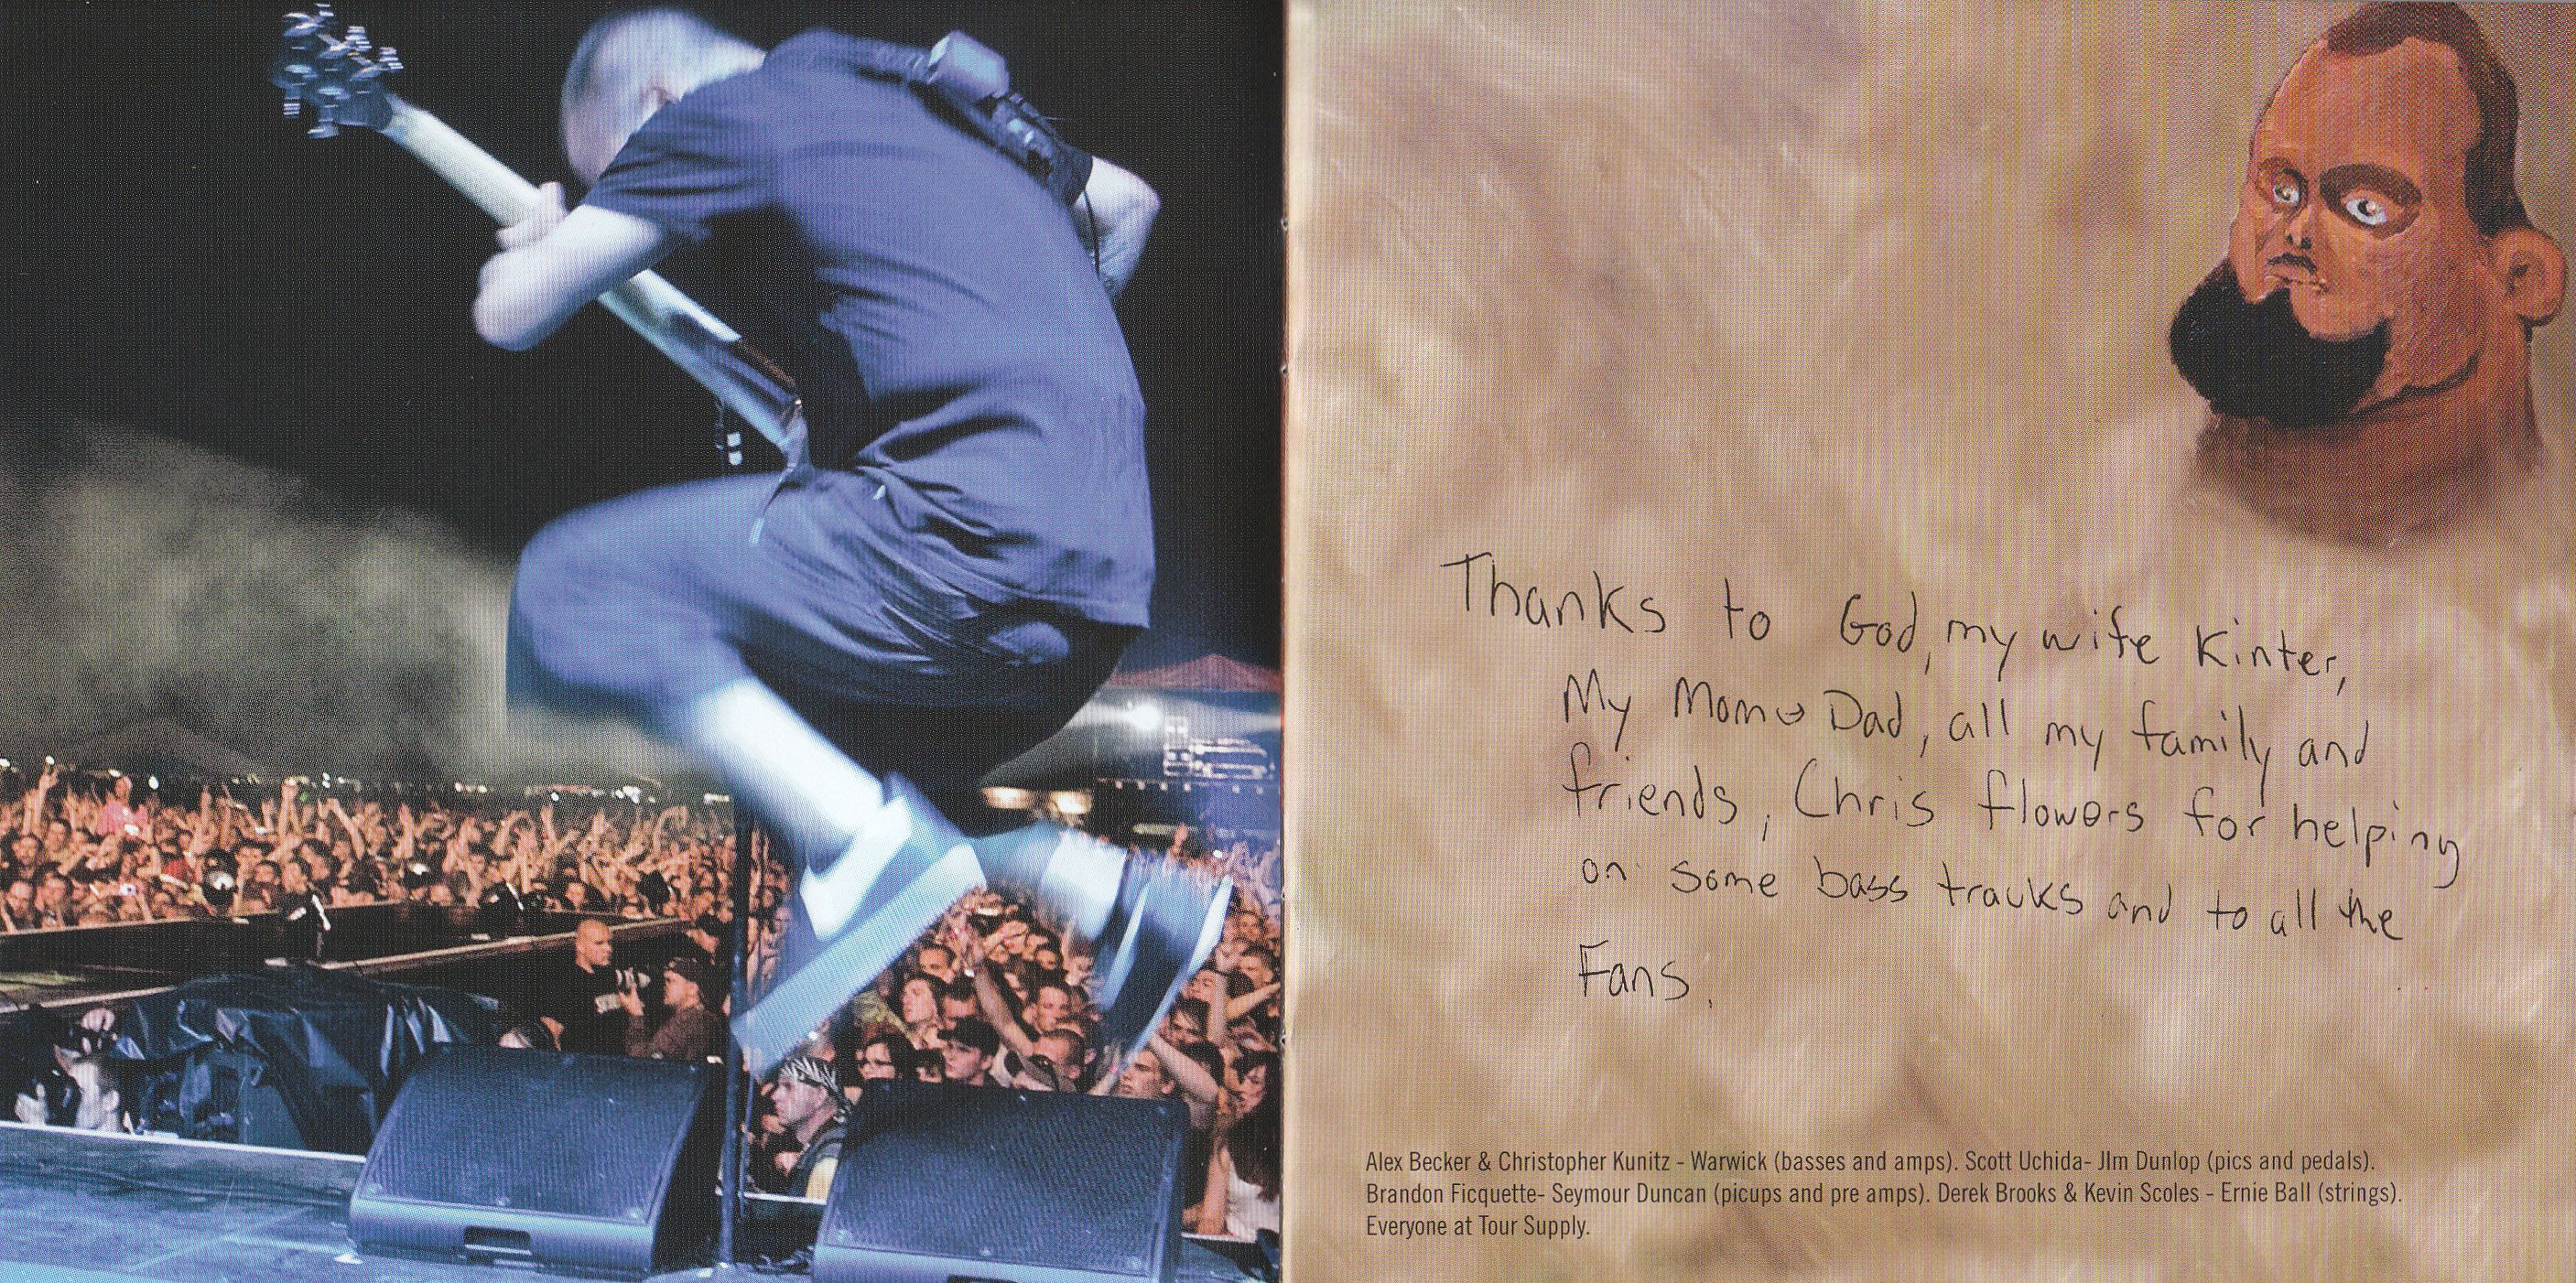 Thanks to God, my wife Kinter,
My Mom & Dad, all my family and
friends, Chris flowers for helping
on some bass trauks and to all the
Fans.
Alex Becker & Christopher Kunitz - Warwick (basses and amps). Scott Uchida- JIm Dunlop (pics and pedals).
Brandon Ficquette- Seymour Duncan (picups and pre amps). Derek Brooks & Kevin Scoles - Ernie Ball (strings).
Everyone at Tour Supply.